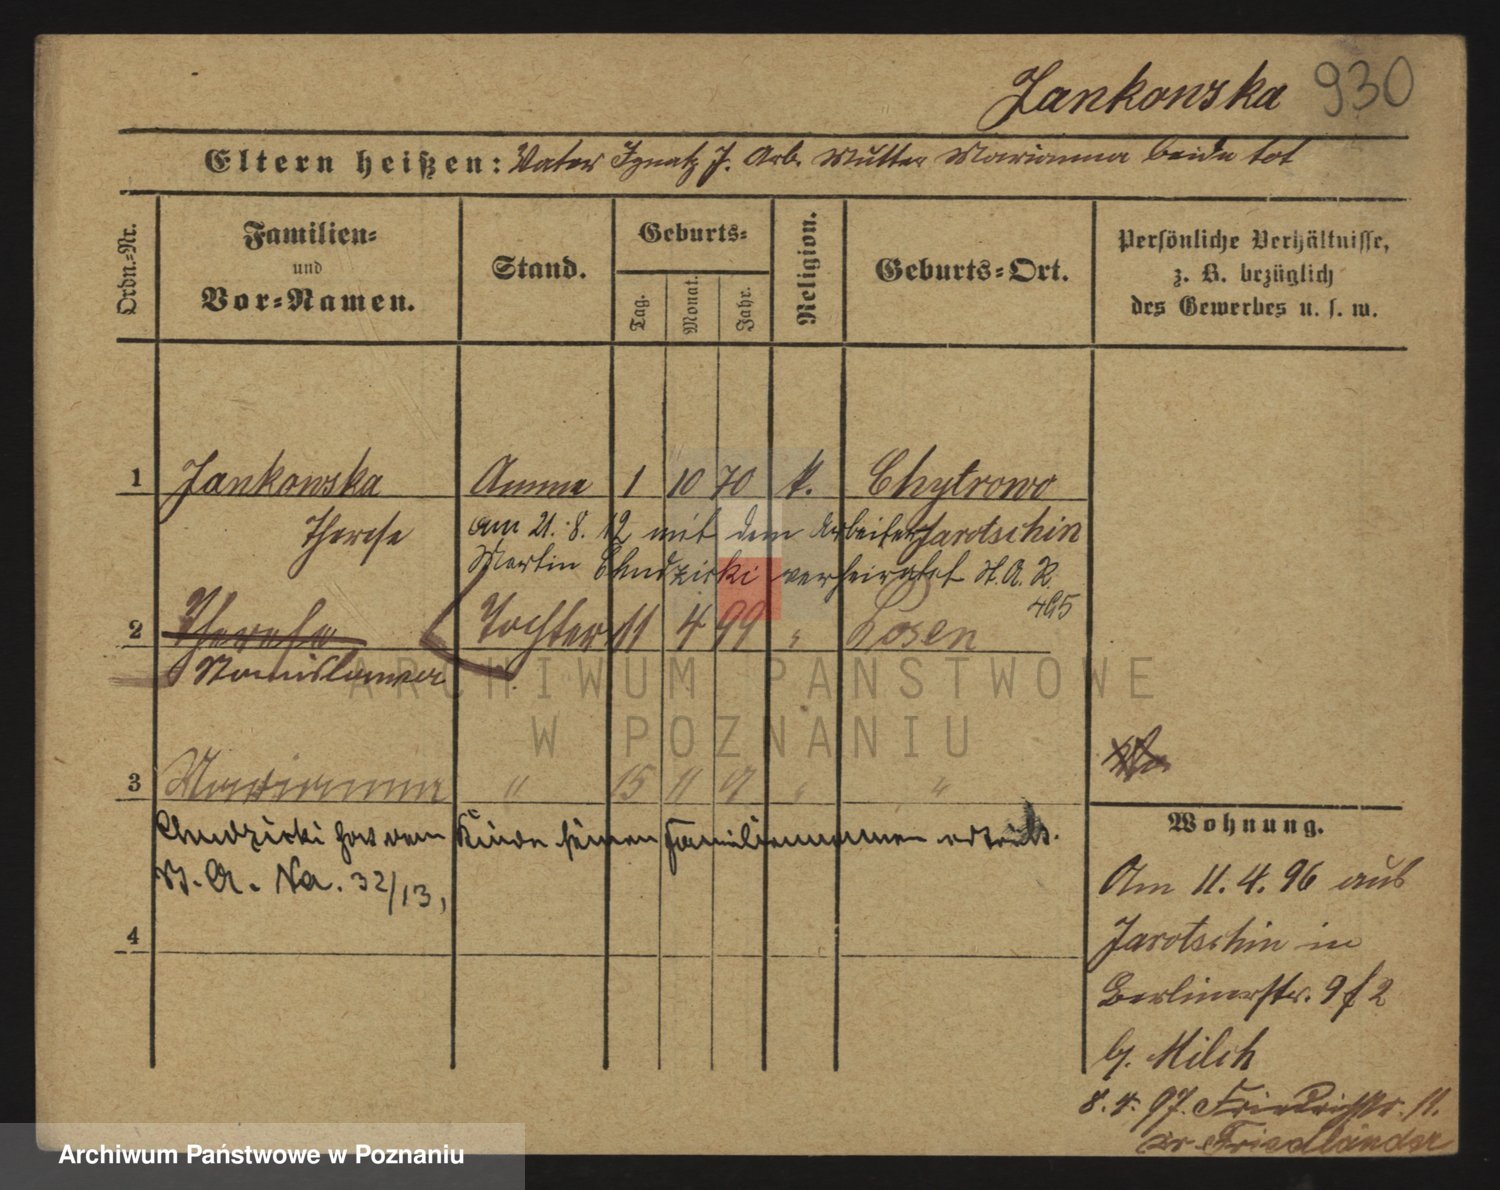 Jankowska 930
Eltern heißen: Vater Ignatz J. Arb. Mutter Marianna beide tot
Ordn.-Nr.
Familien-
und
Vor-Namen.
Stand.
Geburts-
Tag.
Monat.
Jahr.
Religion.
Geburts-Ort.
Persönliche Verhältnisse,
z. B. bezüglich
des Gewerbes u. s. w.
1 Jankowska Amme 1 10 70 k. Chytrowo
Therese Jarotschin
am 21. 8. 12 mit dem Arbeiter
Martin Chudzicki verheiratet St. A. R.
465
2 Therese Tochter 11 4 99 " Posen
Stanislawa
3 Marianna " 15 11 " "
Chudzicki hat dem Kinde seinen Familiennamen erteilt.
St. A. Na. 32/13,
4
Wohnung.
Am 11. 4. 96 aus
Jarotschin in
Berlinerstr. 9 f 2
b. Milch
8. 4. 97. Friedrichstr. 11.
Friedländer
ARCHIWUM PAŃSTWOWE
W POZNANIU
Archiwum Państwowe w Poznaniu